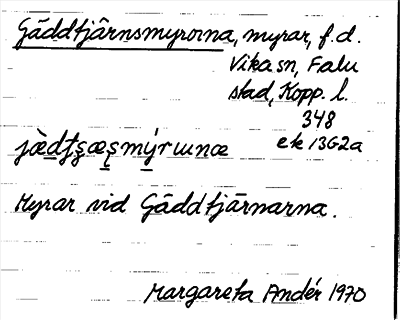 Gäddtjärnsmyrorna, myrar, f.d.
Vika sn, Falu
stad, Kopp. l.
348
ek 13G2a
Myrar vid Gäddtjärnarna.
Margareta Andér 1970